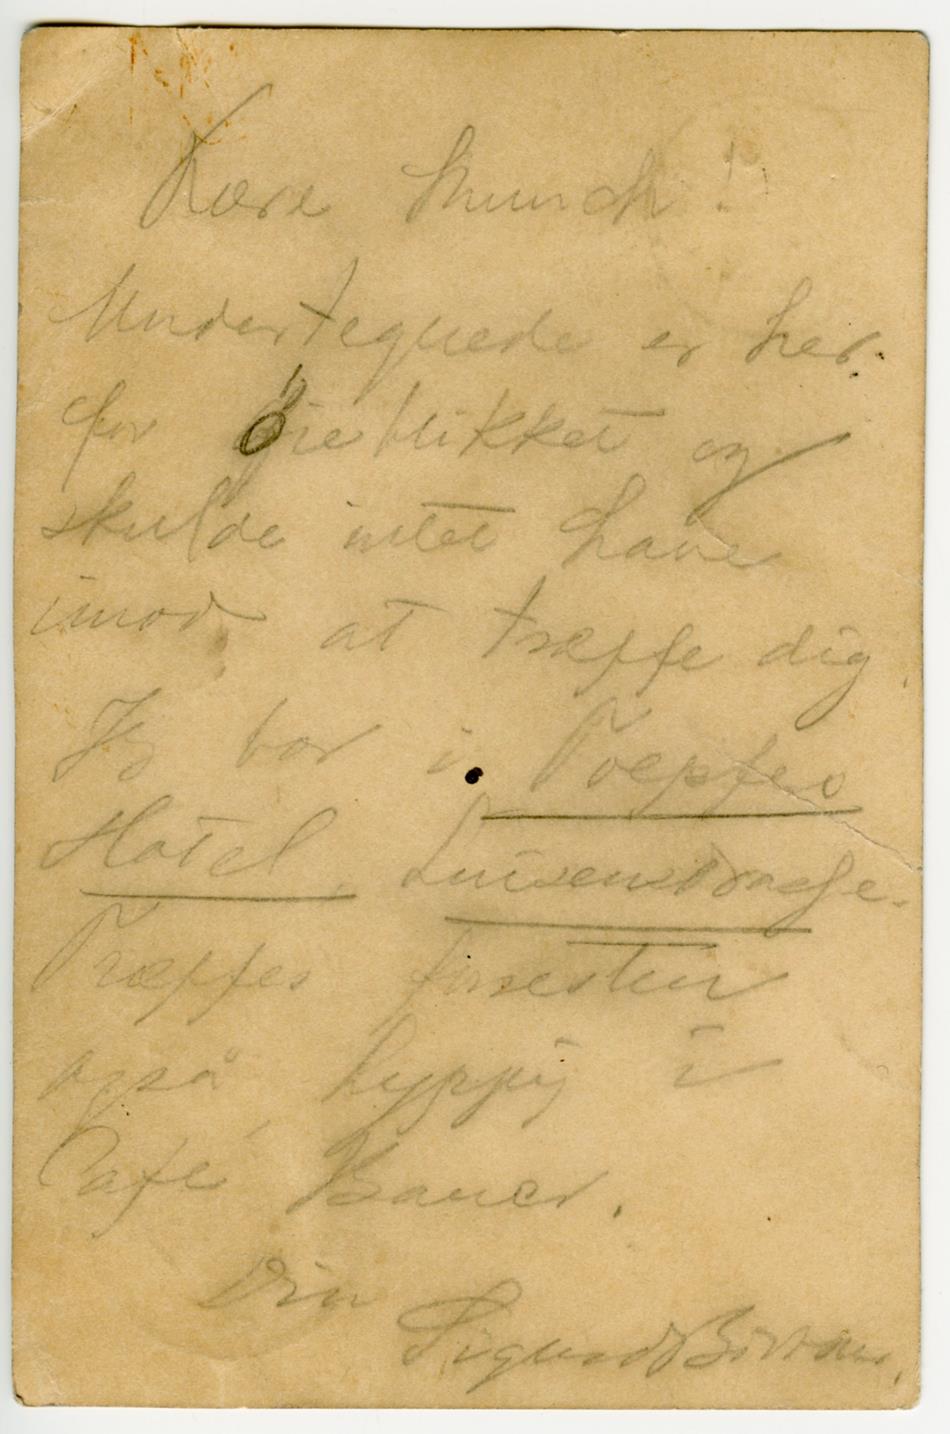 Kære Munch!
Undertegnede er her
for Øieblikket og
skulde intet have
imod at træffe dig
Jeg bor i Töpfers
Hotel, Luisenstrasse.
Træffes foresten
også hyppig i
Café Bauer.
Din
Sigurd Bødtker.